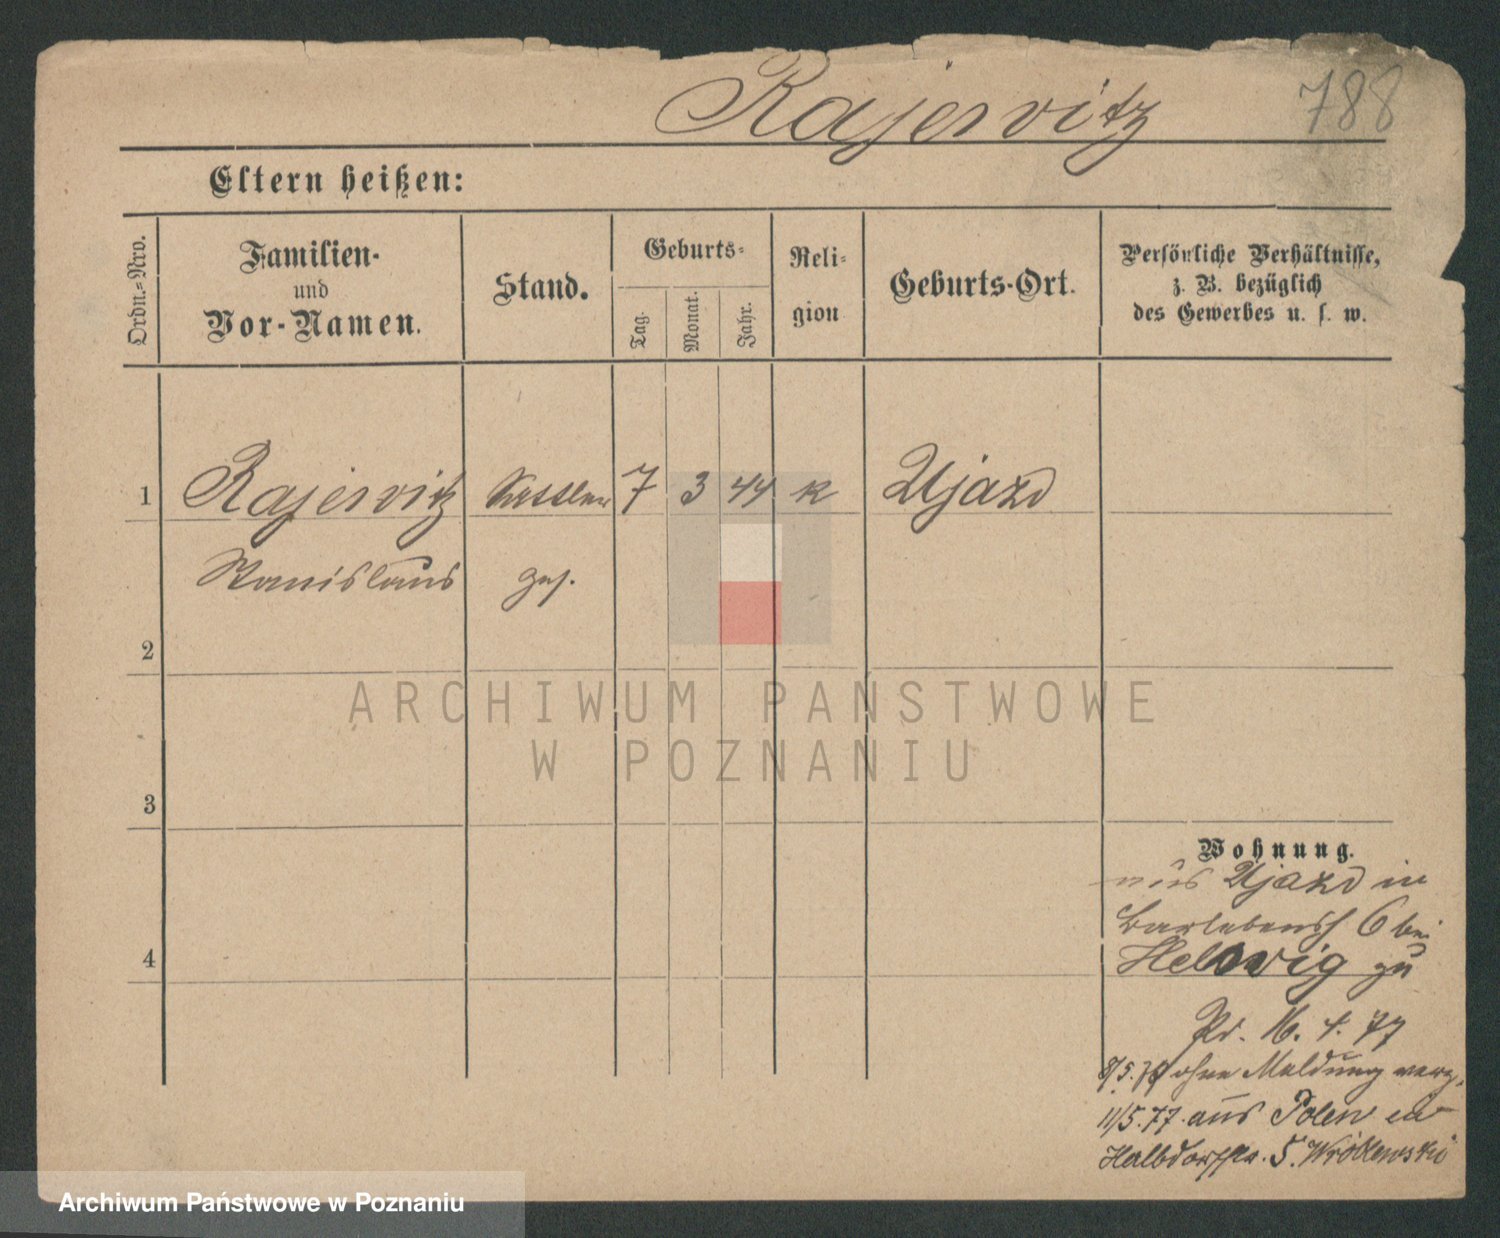 Rajewitz 788
Eltern heißen:
Ordn.-Nro.
Familien-
und
Vor-Namen.
Stand.
Geburts-
Tag.
Monat.
Jahr.
Reli-
gion
Geburts-Ort.
Persönliche Verhältnisse,
z. B. bezüglich
des Gewerbes u. s. w.
1 Rajewitz 7 3 44 k Ujazd
Stanislaus ges.
2
3
4
Wohnung.
aus Ujazd in
6 bei
Helwig zu
Pr. 16. 4. 77
8/5. ohne Meldung verz.
11/5.77. aus Polen
Halbdorfstr. 5. Wróblewski
ARCHIWUM PAŃSTWOWE
W POZNANIU
Archiwum Państwowe w Poznaniu